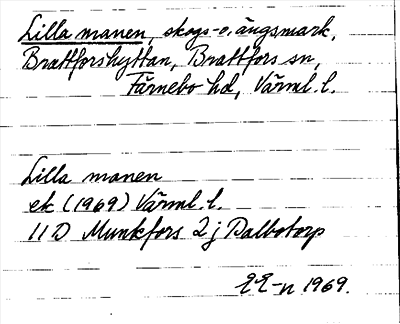 Lilla manen, skogs- o. ängsmark,
Brattforshyttan, Brattfors sn,
Färnebo hd, Värml. l.
Lilla manen
ek (1969) Värml. l.
11 D Munkfors 2 j Dalbotorp
EE-n 1969.